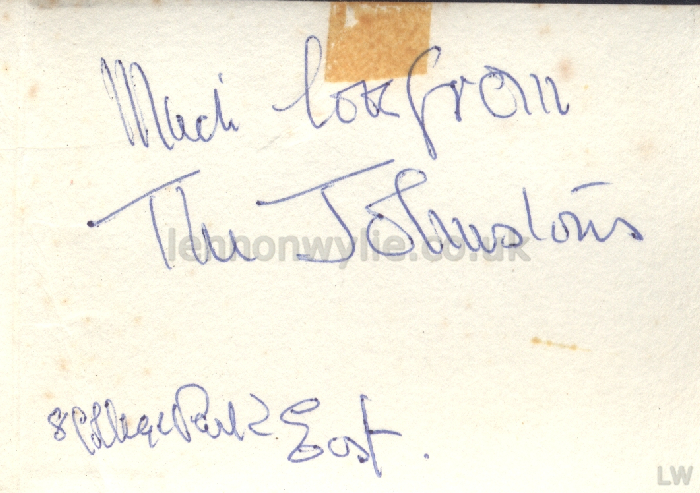 Much love from
The Johnstons
lennonwylie.co.uk
8 College Park East.
LW